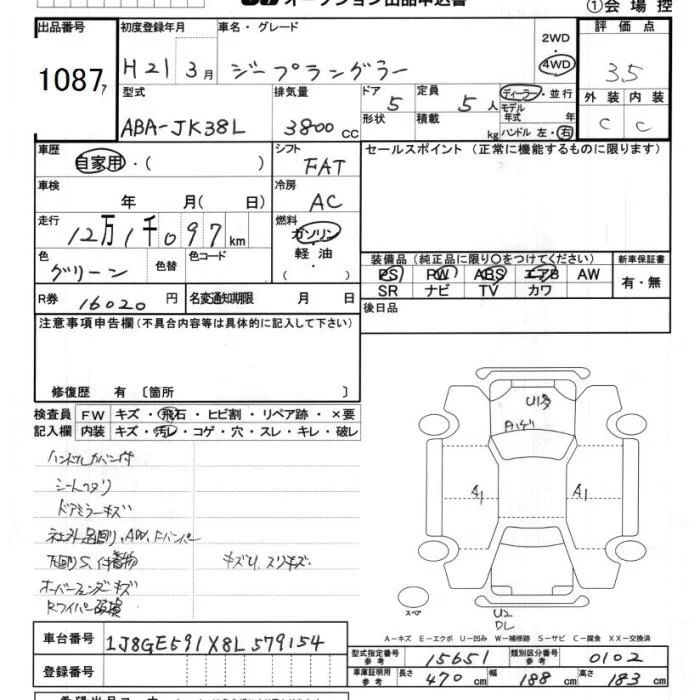 オークション出品申込書
①会場控
出品番号 初度登録年月 車名・グレード 2WD 評価点
1087 H21 3月 ジープラングラー 4WD 3.5
型式 排気量 ドア 定員 ディーラー・並行 外装 内装
ABA-JK38L 3800cc 5 5人 モデル年式 年 C C
形状 積載 kg ハンドル 左・右
車歴 シフト セールスポイント（正常に機能するものに限ります）
自家用・( ) FAT
車検 冷房
年 月( 日) AC
走行 燃料
12万1千097km ガソリン
色 色替 色コード 軽油 装備品（純正品に限り○をつけてください） 新車保証書
グリーン ( ) PS PW ABS エアB AW 有・無
SR ナビ TV カワ
R券 16020円 名変通知期限 月 日 後日品
注意事項申告欄（不具合内容等は具体的に記入して下さい）
修復歴 有〔箇所 〕
検査員 FW キズ・飛石・ヒビ割・リペア跡・×要
記入欄 内装 キズ・汚レ・コゲ・穴・スレ・キレ・破レ
ハンドルカバー付
シートヘタリ
ドアミラーキズ
社外品 AW、Fバンパー
下回りS、付着物 キズU、スリキズ
オーバーフェンダーキズ
Rワイパー
U1
A1
A1
スペア
U2
DL
A－キズ E－エクボ U－凹み W－補修跡 S－サビ C－腐食 XX－交換済
車台番号 1J8GE591X8L579154
型式指定番号 参考 15651 類別区分番号 参考 0102
登録番号 車庫証明用 参考 長さ 470cm 幅 188cm 高さ 183cm
希望出品コーナー